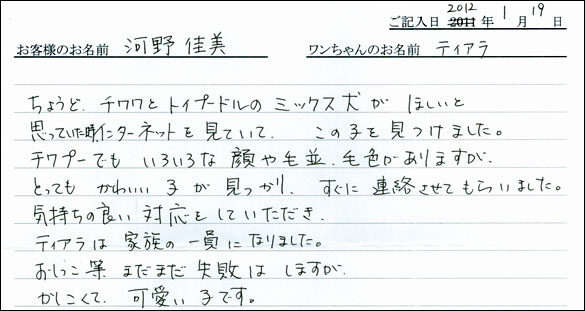 2012
ご記入日 2011 年 1 月 19 日
お客様のお名前 河野 佳美 ワンちゃんのお名前 ティアラ
ちょうど、チワワとトイプードルのミックス犬が ほしいと
思っていた時インターネットを見ていて、この子を見つけました。
チワプーでも いろいろな 顔や毛並、毛色がありますが、
とっても かわいい 子が 見つかり、すぐに 連絡させてもらいました。
気持ちの良い 対応をしていただき、
ティアラは 家族の 一員になりました。
おしっこ 等 まだまだ 失敗は しますが、
かしこくて、可愛い 子です。